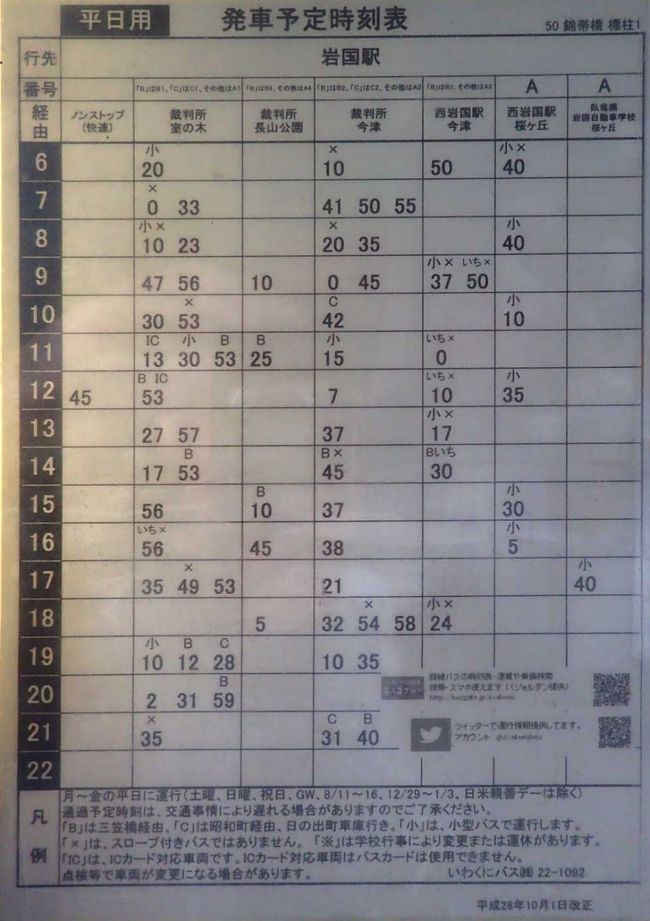 平日用 発車予定時刻表 50 錦帯橋 標柱1
行先 岩国駅
番号 「B」はB1、「C」はC1、その他はA1 「B」はB4、その他はA4 「B」はB2、「C」はC2、その他はA2 「B」はB3、その他はA3 A A
経由 ノンストップ(快速) 裁判所 室の木 裁判所 長山公園 裁判所 今津 西岩国駅 今津 西岩国駅 桜ヶ丘 臥竜橋 岩国自動車学校 桜ヶ丘
小 × 小×
6 20 10 50 40
×
7 0 33 41 50 55
小× × 小
8 10 23 20 35 40
小× いち×
9 47 56 10 0 45 37 50
× C 小
10 30 53 42 10
IC 小 B B 小 いち×
11 13 30 53 25 15 0
B IC いち× 小
12 45 53 7 10 35
小×
13 27 57 37 17
B B× Bいち
14 17 53 45 30
B 小
15 56 10 37 30
いち× 小
16 56 45 38 5
× 小
17 35 49 53 21 40
× 小×
18 5 32 54 58 24
小 B C
19 10 12 28 10 35
路線バスの時刻表・運賃や乗換検索
携帯・スマホ使えます!(ジョルダン提供)
B
20 2 31 59
× C B
21 35 31 40
ツイッターで運行情報提供してます。
アカウント
22
凡例
月～金の平日に運行(土曜、日曜、祝日、GW、8/11～16、12/29～1/3、日米親善デーは除く)
通過予定時刻は、交通事情により遅れる場合がありますのでご了承ください。
「B」は三笠橋経由、「C」は昭和町経由、日の出町車庫行き。「小」は、小型バスで運行します。
「×」は、スロープ付きバスではありません。「※」は学校行事により変更または運休があります。
「IC」は、ICカード対応車両です。ICカード対応車両はバスカードは使用できません。
点検等で車両が変更になる場合があります。 いわくにバス㈱ 22-1092
平成28年10月1日改正